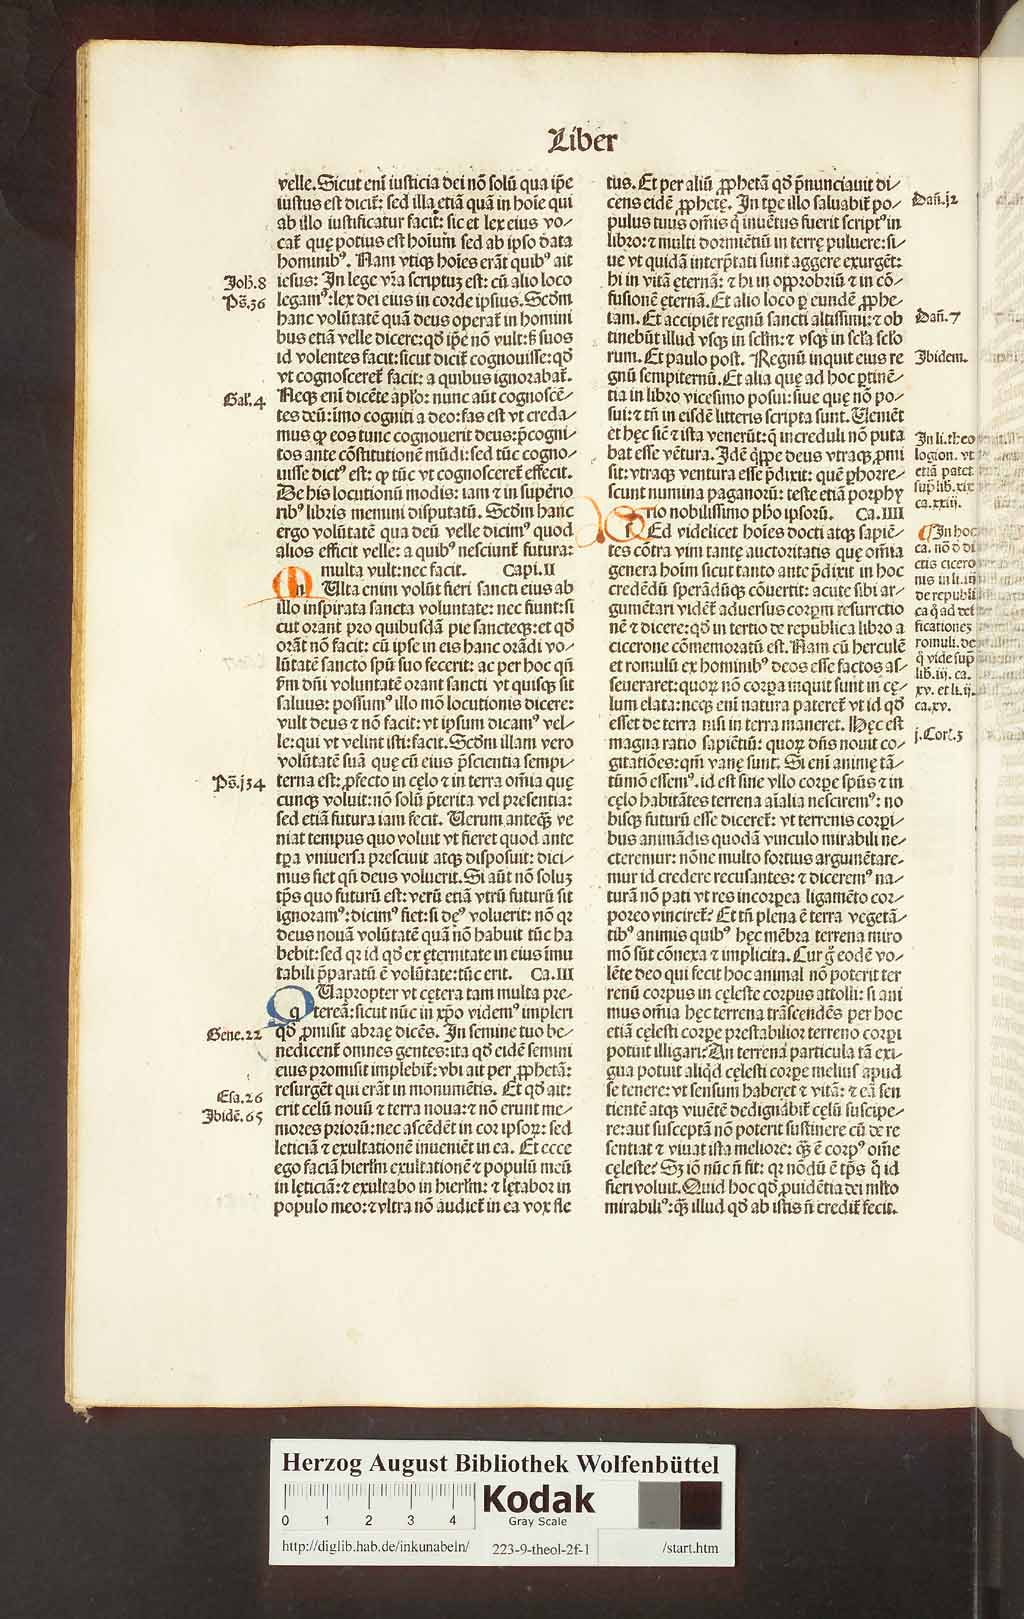 Liber
velle. Sicut enī iusticia dei nō solū qua ip̄e
iustus est diciť: sed illa etiā quā in hoīe qui
ab illo iustificatur faciť: sic et lex eius vo⸗
cať quę potius est hoīum sed ab ipso data
hominibꝰ. Nam vtiqꝫ hoīes erāt quibꝰ ait
Joh̄. 8
iesus: In lege vr̄a scriptuꝫ est: cū alio loco
Ps̄. 36
legamꝰ: lex dei eius in corde ipsius. Scd̄m
hanc volūtatē quā deus operať in homini
bus etiā velle dicit̄: qđ ip̄e nō vult: sꝫ suos
id volentes facit: sicut diciť cognouisse: qđ
vt cognosceret̄ facit: a quibus ignorabať.
Gal̄. 4
Neqꝫ enī dicēte aplo: nunc aūt cognoscē⸗
tes deū: īmo cogniti a deo: fas est vt creda⸗
mus ꝙ eos tunc cognouerit deus: p̄cogni⸗
tos ante cōstitutionē mūdi: sed tūc cogno⸗
uisse dictꝰ est: ꝙ tūc vt cognosceret̄ effecit.
De his locutionū modis: iam ⁊ in superio
ribꝰ libris memini disputatū. Scd̄m hanc
ergo volūtatē qua deū velle dicimꝰ quod
alios efficit velle: a quibꝰ nesciunť futura:
multa vult: nec facit. Capi. II
MUlta enim volūt fieri sancti eius ab
illo inspirata sancta voluntate: nec fiunt: si
cut orant pro quibusdā pie sancteqꝫ: et qđ
orāt nō facit: cū ipse in eis hanc orādi vo⸗
lūtatē sancto spū suo fecerit: ac per hoc qn̄
s̄m dn̄i voluntatē orant sancti vt quisqꝫ sit
saluus: possumꝰ illo mō locutionis dicere:
vult deus ⁊ nō facit: vt ipsum dicamꝰ vel⸗
le: qui vt velint isti: facit. Scd̄m illam vero
volūtatē suā que cū eius p̄scientia sempi⸗
Ps̄. 134
terna est: ꝓfecto in cęlo ⁊ in terra om̄ia que
cunqꝫ voluit: nō solū p̄terita vel presentia:
sed etiā futura iam fecit. Uerum anteqꝫ̄ ve
niat tempus quo voluit vt fieret quod ante
tp̄a vniuersa presciuit atqꝫ disposuit: dici⸗
mus fiet qn̄ deus voluerit. Si aūt nō soluꝫ
tp̄s quo futurū est: verū etiā vtrū futurū sit
ignoramꝰ: dicimꝰ fiet: si deꝰ voluerit: nō qꝛ
deus nouā volūtatē quā nō habuit tūc ha
bebit: sed qꝛ id qđ ex ęternitate in eius īmu
tabili p̄paratū ē volūtate: tūc erit. Ca. III
QUapropter vt cętera tam multa pre⸗
tereā: sicut nūc in xp̄o videmꝰ impleri
Gene. 22
qđ ꝓmisit abraę dicēs. In semine tuo be⸗
nedicenť omnes gentes: ita qđ eidē semini
eius promisit implebiť: vbi ait per ꝓphetā:
Esa. 26
resurgēt qui erāt in monumētis. Et qđ ait:
Ibidē. 65
erit celū nouū ⁊ terra noua: ⁊ nō erunt me⸗
mores priorū: nec ascēdēt in cor ipsoꝝ: sed
leticiā ⁊ exultationē inueniēt in ea. Et ecce
ego faciā hierlm̄ exultationē ⁊ populū meū
in lęticiā: ⁊ exultabo in hierlm̄: ⁊ lętabor in
populo meo: ⁊ vltra nō audieť in ea vox fle
tus. Et per aliū ꝓphetā qđ p̄nunciauit di⸗
Dan̄. 12
cens eidē ꝓphetę. In tp̄e illo saluabiť po⸗
pulus tuus om̄is q̇ inuētus fuerit scriptꝰ in
libro: ⁊ multi dormiētiū in terrę puluere: si⸗
ue vt quidā interp̄tati sunt aggere exurgēt:
hi in vitā ęternā: ⁊ hi in opprobriū ⁊ in cō⸗
fusionē ęternā. Et alio loco ꝑ eundē ꝓphe⸗
Dan̄. 7
tam. Et accipiēt regnū sancti altissimi: ⁊ ob
tinebūt illud vsqꝫ in scl̄m: ⁊ vsqꝫ in scl̄a scl̄o
Ibidem.
rum. Et paulo post. Regnū inquit eius re
gnū sempiternū. Et alia quę ad hoc ꝑtinē⸗
tia in libro vicesimo posui: siue quę nō po⸗
sui: ⁊ tn̄ in eisdē litteris scripta sunt. Uenient
et hęc sic̄ ⁊ ista venerūt: q̄ increduli nō puta
bāt esse vētura. Idē q̇ppe deus vtraqꝫ ꝓmi
sit: vtraqꝫ ventura esse p̄dixit: quē ꝑhorre⸗
scunt numina paganorū: teste etiā porphy
rio nobilissimo ph̄o ipsorū. Ca. IIII
In li. theo
logion. vt
etiā patet
sup̄ lib. xix
ca. xxiij.
SEd videlicet hoīes docti atqꝫ sapiē⸗
tes cōtra vim tantę auctoritatis quę om̄ia
genera hoīm sicut tanto ante p̄dixit in hoc
credēdū sperādūqꝫ cōuertit: acute sibi ar⸗
gumētari videt̄ aduersus corpꝝ resurrctio
nē ⁊ dicere: qđ in tertio de republica libro a
cicerone cōmemoratū est. Nam cū herculē
et romulū ex hominibꝰ deos esse factos as⸗
seueraret: quoꝝ nō corpa inquit sunt in cę⸗
lum elata: neqꝫ enī natura patereť vt id qđ
esset de terra nisi in terra maneret. Hęc est
magna ratio sapiētiū: quoꝝ dn̄s nouit co⸗
gitatiōes: qm̄ vanę sunt. Si enī animę tā⸗
tūmō essemꝰ. id est sine vllo corpe spūs ⁊ in
cęlo habitātes terrena aīalia nesciremꝰ: no
bisqꝫ futurū esse dicereť: vt terrenis corpi⸗
bus animādis quodā vinculo mirabili ne⸗
cteremur: nōne multo fortius argumētare⸗
mur id credere recusantes: ⁊ diceremꝰ na⸗
turā nō pati vt res incorpea ligamēto cor⸗
poreo vincireť? Et tn̄ plena ē terra vegetā⸗
tibꝰ animis quibꝰ hęc mēbra terrena miro
mō sūt cōnexa ⁊ implicita. Cur g̊ eodē vo⸗
lēte deo qui fecit hoc animal nō poterit ter
renū corpus in cęleste corpus attolli: si ani
mus om̄ia hęc terrena trāscendēs per hoc
etiā cęlesti corpe prestabilior terreno corpi
potuit illigari? An terrena particula tā exi⸗
gua potuit aliqđ cęlesti corpe melius apud
se tenere: vt sensum haberet ⁊ vitā: ⁊ eā sen
tientē atqꝫ viuētē dedignabiť cęlū suscipe⸗
re: aut susceptā nō poterit sustinere cū de re
sentiat ⁊ viuat ista meliore: qꝫ̄ ē corpꝰ om̄e
cęleste? Sꝫ iō nūc n̄ fit: qꝛ nōdū ē tp̄s q̊ id
fieri voluit. Quid hoc qđ ꝓuidētia dei ml̄to
mirabiliꝰ: qꝫ̄ illud qđ ab istis n̄ crediť fecit.
¶ In hoc
romuli. de
q̇ vide sup̄
lib. iij. ca.
xv. et li. ij.
ca. xv.
j. Cor̄. 3
Herzog August Bibliothek Wolfenbüttel
0 1 2 3 4
Kodak
Gray Scale
http://diglib.hab.de/inkunabeln/ 223-9-theol-2f-1 /start.htm